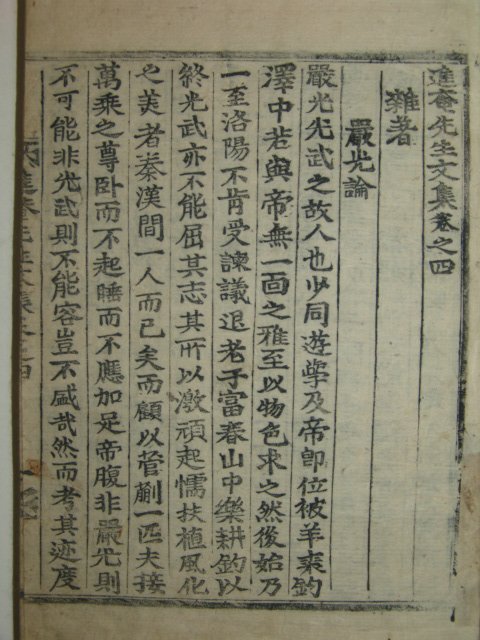 進菴先生文集卷之四
雜著
嚴光論
嚴光光武之故人也少同遊學及帝卽位被羊裘釣
澤中若與帝無一面之雅至以物色求之然後始乃
一至洛陽不肯受諫議退老于富春山中樂耕釣以
終光武亦不能屈其志其所以激頑起懦扶植風化
之美者秦漢間一人而已矣而顧以菅蒯一匹夫接
萬乘之尊臥而不起睡而不應加足帝腹非嚴光則
不可能非光武則不能容豈不盛哉然而考其迹度
進菴先生文集卷之四